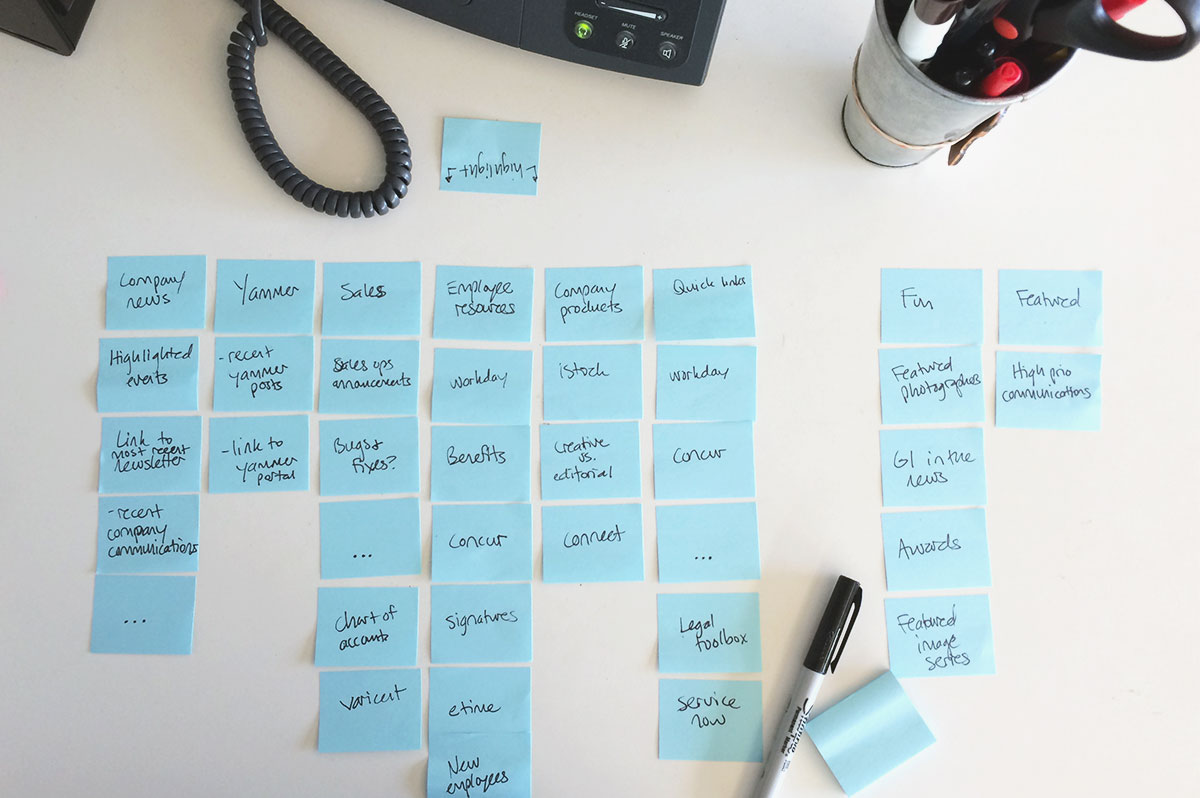 HEADSET
MUTE
SPEAKER
highlight
Company
news
Highlighted
events
Link to
most recent
newsletter
-recent
company
communications
...
Yammer
-recent
yammer
posts
-link to
yammer
portal
Sales
Sales ops
annoucements
Bugs &
fixes?
...
Chart of
accounts
varicent
Employee
resources
workday
Benefits
Concur
signatures
etime
New
employees
Company
products
iStock
Creative
vs.
editorial
Connect
Quick links
workday
Concur
...
Legal
toolbox
service
now
Fun
Featured
photographers
GI in the
news
Awards
Featured
image
series
Featured
High prio
communications
Sharpie